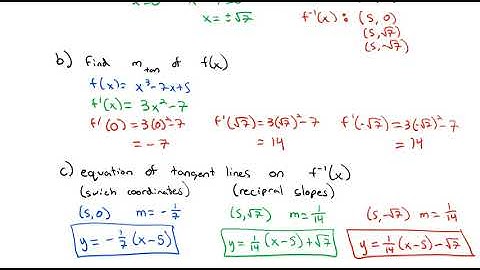 x = ± √7 f⁻¹(x) : (5, 0)
(5, √7)
(5, -√7)
b) Find m tan of f(x)
f(x) = x³ - 7x + 5
f'(x) = 3x² - 7
f'(0) = 3(0)² - 7 f'(√7) = 3(√7)² - 7 f'(-√7) = 3(-√7)² - 7
= -7 = 14 = 14
c) equation of tangent lines on f⁻¹(x)
(swich coordinates) (recipral slopes)
(5, 0) m = -1/7 (5, √7) m = 1/14 (5, -√7) m = 1/14
y = -1/7 (x - 5) y = 1/14 (x - 5) + √7 y = 1/14 (x - 5) - √7